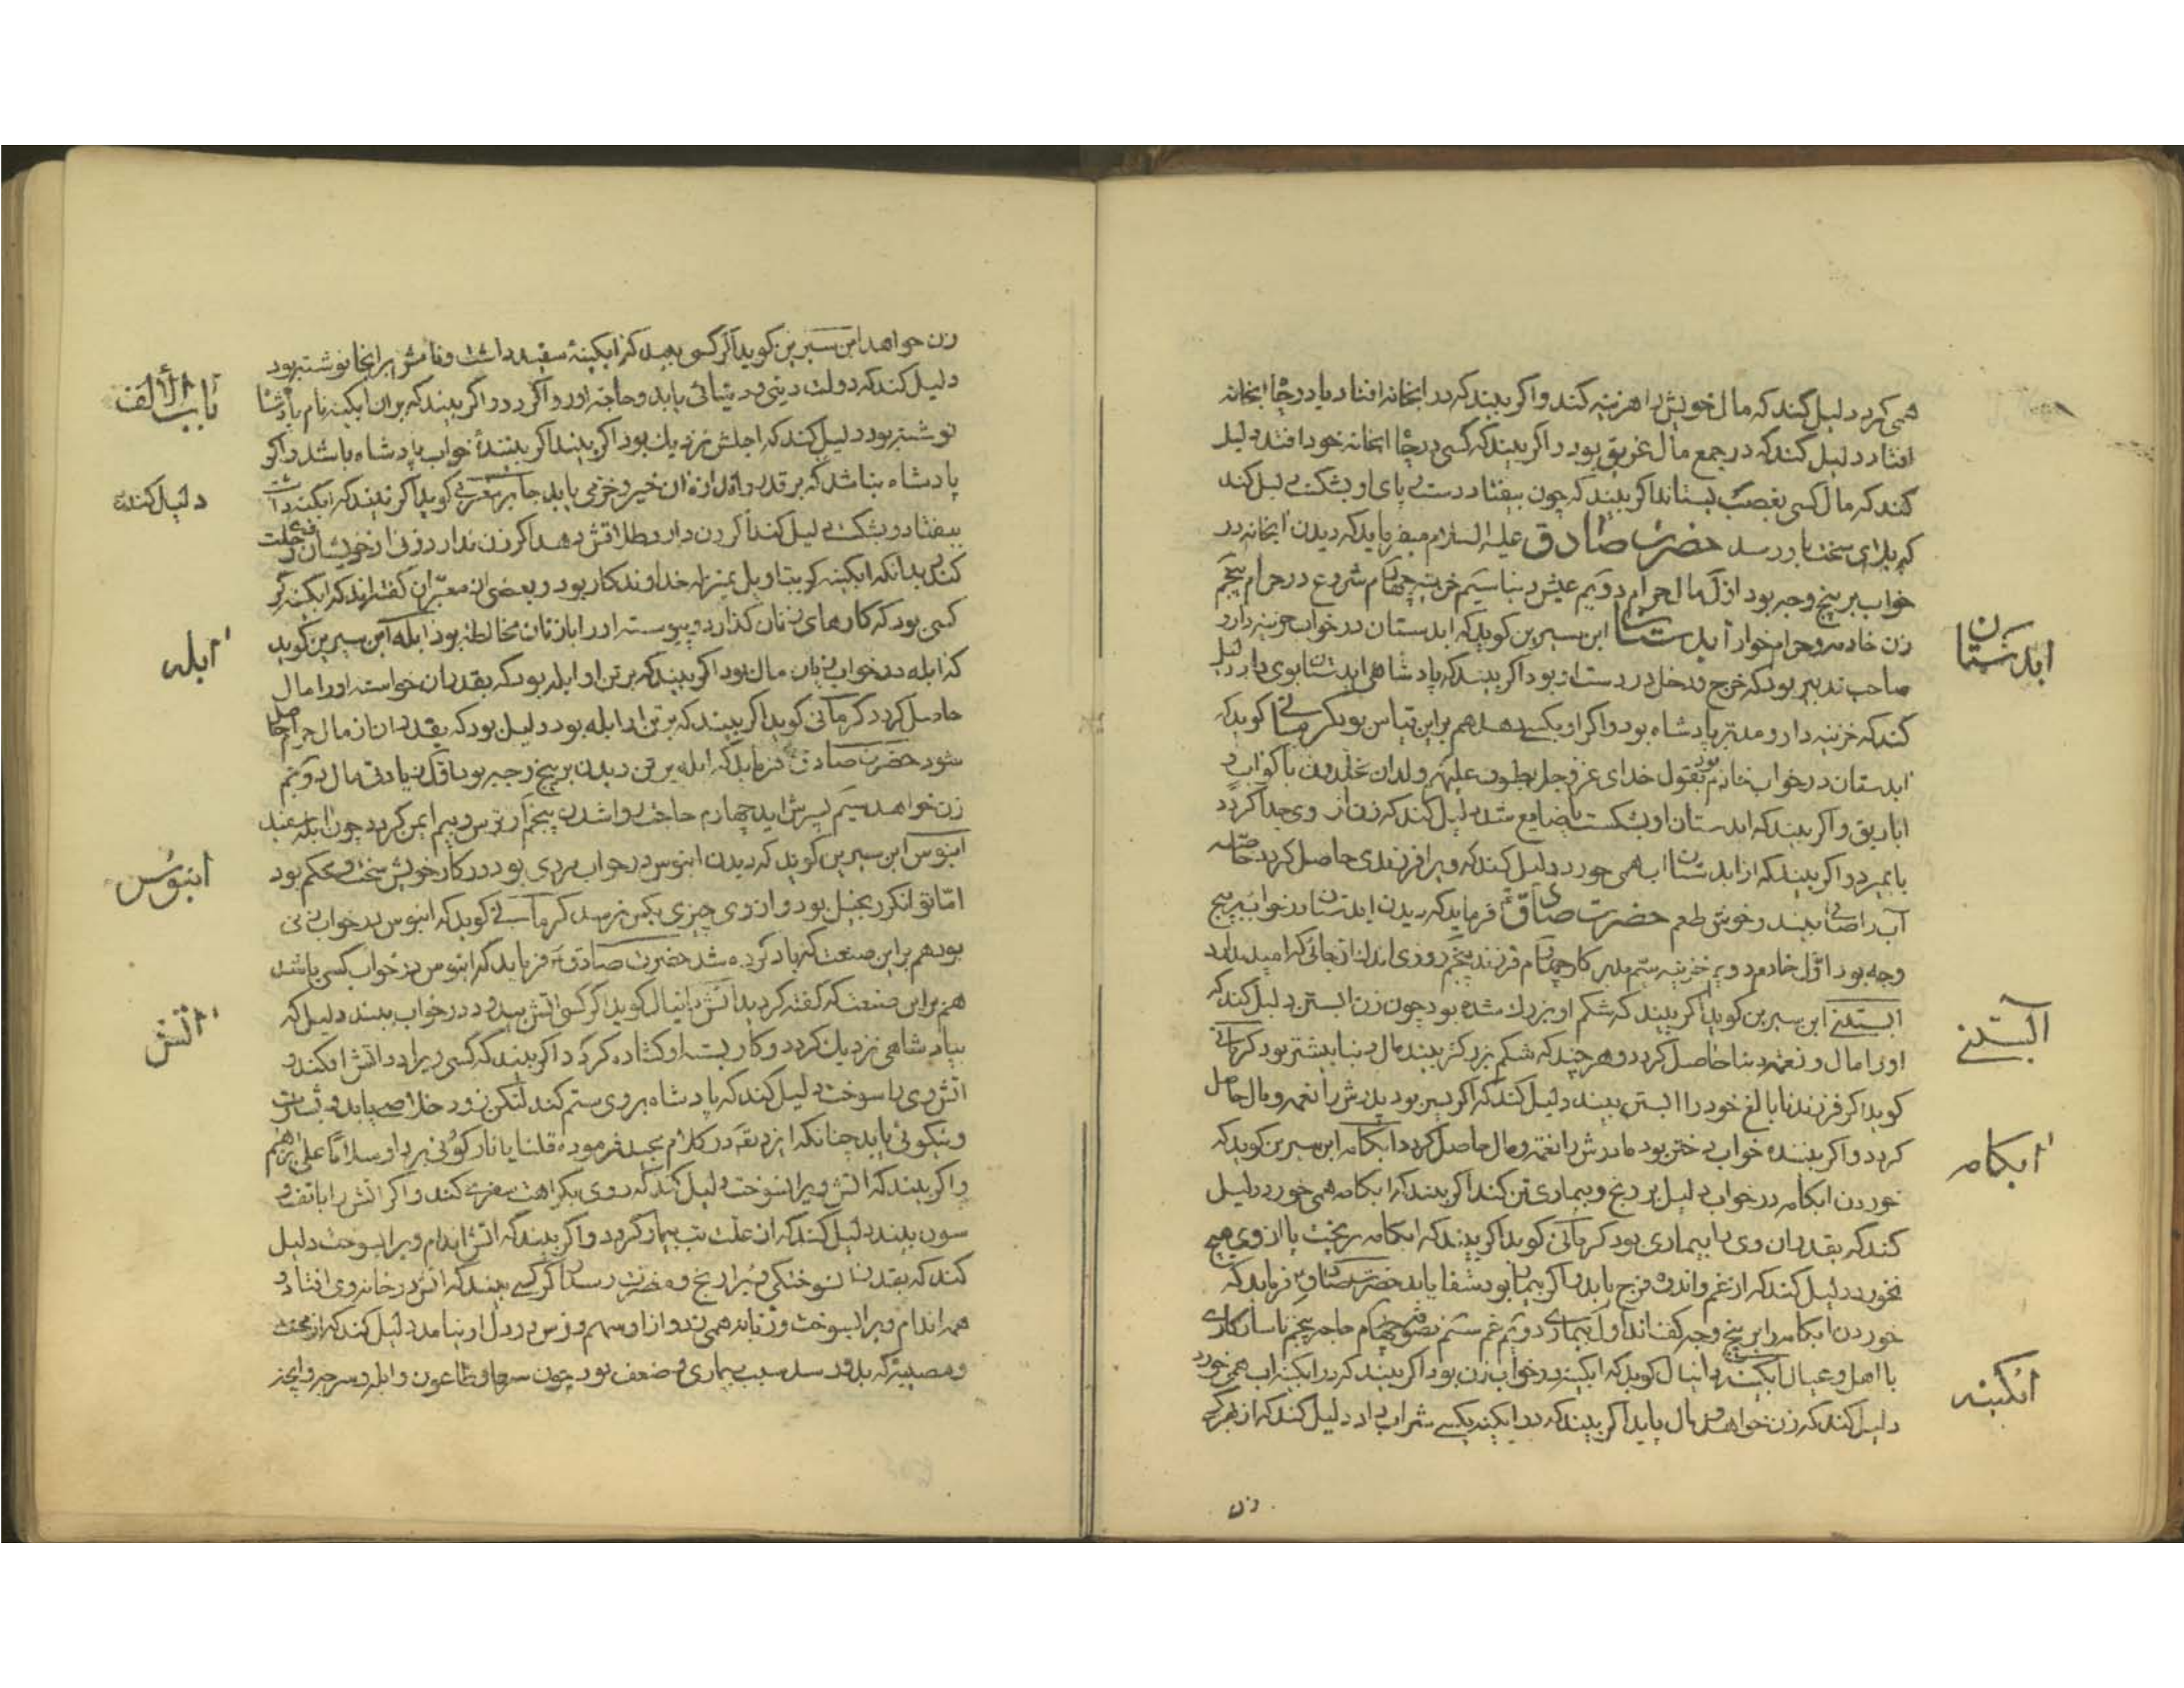 همی کرد دلیل کند که مال خویش را هزینه کند و اکر بیند که در ابخانه افتاد یا در چاه ابخانه
افتاد دلیل کند که در جمع مال غریق بود و اکر بیند که کسی در چاه ابخانه خود افتد دلیل
کند که مال کسی بغصب بستاند اکر بیند که چون بیفتاد دست یا پای او بشکست دلیل کند
که بلای سخت باو رسد حضرت صادق علیه السلام میفرماید که دیدن ابخانه در
خواب بر پنج وجه بود اوّل مال حرام دویم عیش دنیا سیم خزینه چهارم شروع در حرام پنجم
زن خادمه و حرام خوار ابدستان ابن سیرین کوید که ابدستان در خواب خزینه دار و
صاحب تدبیر بود که خرج و دخل در دست او بود اکر بیند که پادشاهی ابدستان بوی داد دلیل
کند که خزینه دار و مدبّر پادشاه بود و اکر او بکسی دهد هم براین قیاس بود کرمانی کوید که
ابدستان در خواب خادم بود بقول خدای عزوجل یطوف علیهم ولدان مخلدون باکواب و
اباریق و اکر بیند که ابدستان او بشکست یا ضایع شد دلیل کند که زن از وی جدا کردد
یا بمیرد و اکر بیند که از ابدستان اب همی خورد دلیل کند که ویرا فرزندی حاصل کردد خاصه
آب را صافی بیند و خوش طعم حضرت صادق فرماید که دیدن ابدستان در خواب بر پنج
وجه بود اوّل خادم دویم خزینه سیم مدبر کار چهارم فرزند پنجم روزی اندک از جائی که امید ندارد
ابستنی ابن سیرین کوید اکر بیند که شکم او بزرك شده بود چون زن ابستن دلیل کند که
اورا مال و نعمة دنیا حاصل کردد و هرچند که شکم بزرکتر بیند مال دنیا بیشتر بود کرمانی
کوید اکر فرزند نابالغ خود را ابستن بیند دلیل کند که اکر پسر بود پدرش را نعمة و مال حاصل
کردد و اکر بیننده خواب دختر بود مادرش را نعمة و مال حاصل کردد ابکامه ابن سیرین کوید که
خوردن ابکامه در خواب دلیل بر رنج و بیماری تن کند اکر بیند که ابکامه همی خورد دلیل
کند که بقدر ان وی را بیماری بود کرمانی کوید اکر بیند که ابکامه بریخت یا از وی هیچ
نخورد دلیل کند که از غم و اندوه فرج یابد و اکر بیمار بود شفا یابد حضرت صادق فرماید که
خوردن ابکامه را بر پنج وجه کفته اند اول بیماری دویم غم سیّم چهارم حاجه پنجم ناسازکاری
با اهل و عیال ابکینه دانیال کوید که ابکینه در خواب زن بود اکر بیند که در ابکینه اب همی خورد
دلیل کند که زن خواهد و مال یابد اکر بیند که در ابکینه بکسی شراب داد دلیل کند که از بهر کسی
زن
ابدستان
آبستنے
ابکامه
ابکینه
زن خواهد ابن سیرین کوید اکر کسی بیند که ابکینهٔ سفید داشت و نامش بر انجا نوشته بود
دلیل کند که دولت دینی و دنیائی یابد و حاجة او روا کردد و اکر بیند که بران ابکینه نام پادشاه
نوشته بود دلیل کند که اجلش نزدیك بود اکر بیند اکر بینندهٔ خواب پادشاه باشد و اکر
پادشاه نباشد که بر قدر و اندازه ان خیر و خرمی یابد جابر مغربی کوید اکر بیند که ابکینه داشت
بیفتاد و بشکست دلیل کند اکر زن دارد طلاقش دهد اکر زن ندارد زنی از خویشان رحلت
کند بدانکه ابکینه کر بتاویل بمنزله خداوند کار بود و بعضی از معبّران کفته اند که ابکینه کر
کسی بود که کارهای زنان کذارد و پیوسته اورا با زنان مخالطة بود ابله ابن سیرین کوید
که ابله در خواب زیادت مال بود اکر بیند که بر تن او ابله بود که بقدر ان خواسته اورا مال
حاصل کردد کرمانی کوید اکر بیند که بر تن او ابله بود دلیل بود که بقدر ان از مال حرام حاصل
شود حضرت صادق فرماید که ابله بر تن دیدن بر پنج وجه بود اوّل زیادتی مال دویّم
زن خواهد سیّم پسرش اید چهارم حاجت روا شدن پنجم از ترس و بیم ایمن کردد چون ابله سفید
ابنوس ابن سیرین کوید که دیدن ابنوس در خواب مردی بود در کار خویش سخت و محکم بود
امّا توانکر بخیل بود و از وی چیزی بکس نرسد کرمانی کوید که ابنوس در خواب زنی
بود هم بر این صنعت که یاد کرده شد حضرت صادق فرماید که ابنوس در خواب کسی باشد
هم براین صنعت که کفته کردید اتش دانیال کوید اکر کسی اتش بیدود در خواب بیند دلیل که
بپادشاهی نزدیك کردد و کار بسته او کشاده کردد اکر بیند که کسی ویرا در اتش افکند و
اتش وی را سوخت دلیل کند که پادشاه بر وی ستم کند لکن زود خلاصی یابد و بشارت
و نیکوئی یابد چنانکه ایزد تعه در کلام مجید فرموده قلنا یا نار کونی بردا و سلاماً علی ابراهیم
و اکر بیند که اتش ویرا نسوخت دلیل کند که وی بکراهت سفری کند و اکر اتش را با تف و
سوز بیند دلیل کند که ان علّت تب بیمار کردد و اکر بیند که اتش اندام ویرا بسوخت دلیل
کند که بقدر ان سوختکی ویرا رنج و مضرت رسد اکر کسی بیند که اتش در خانه وی افتاد و
همه اندام ویرا بسوخت و زبانه همی زد و از او سهم و ترس در دل او نیامد دلیل کند که از محنت
و مصیبتی که بدو رسد سبب بیماری و ضعف بود چون سرما و طاعون و ابله و سرخجه و
باب الألف
دلیل کند که
ابله
ابنوُس
اتش